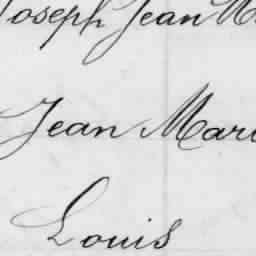 Joseph Jean M
Jean Mari
Louis